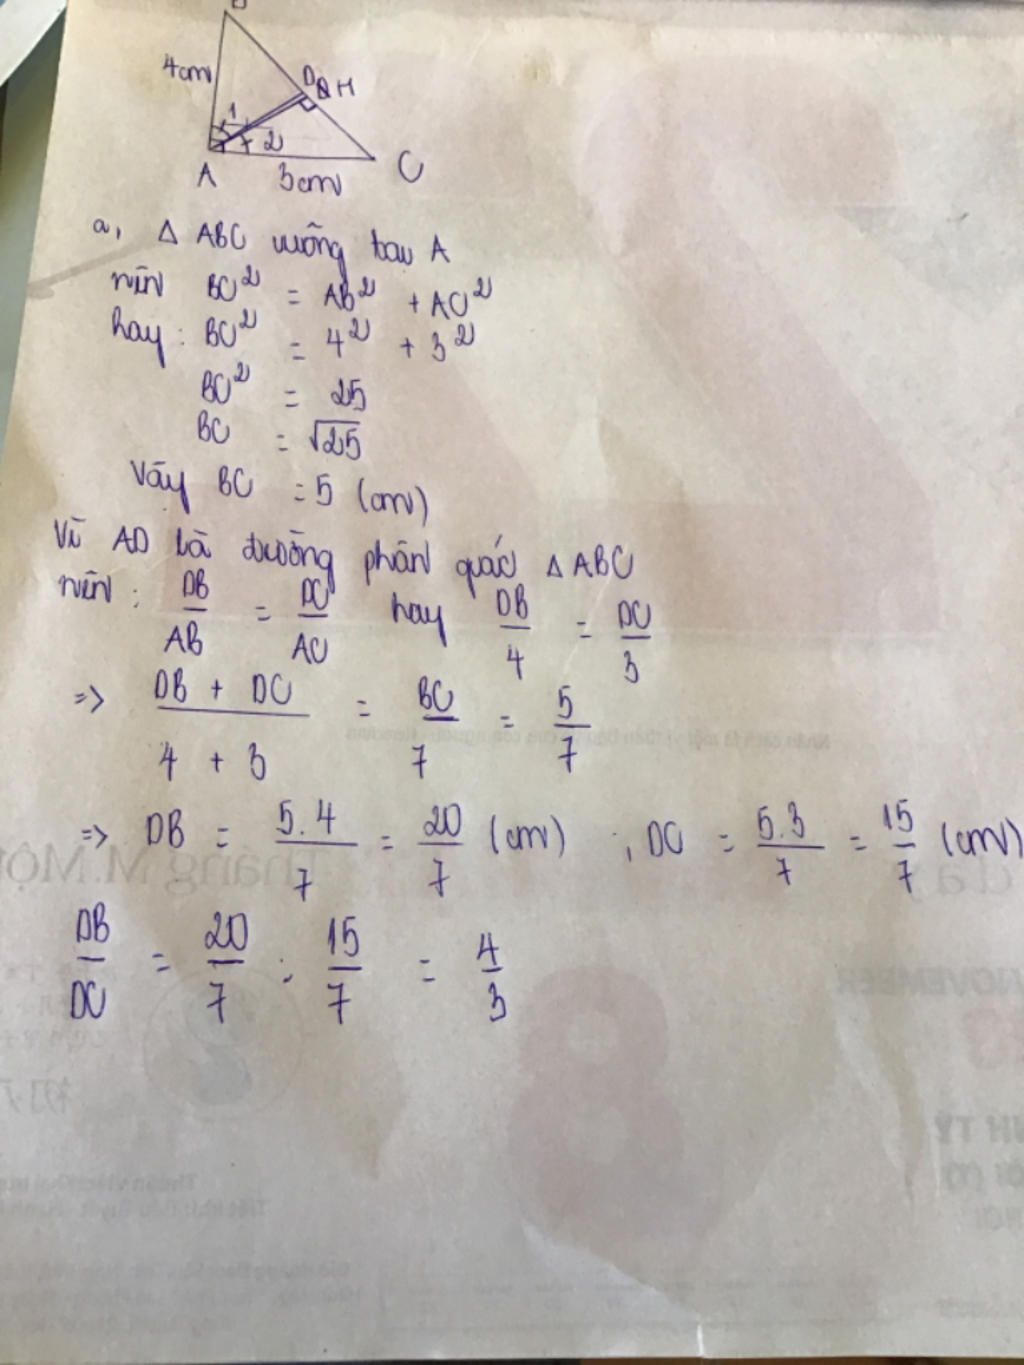 B
4cm
D H
1
2
A 3cm C
a, Δ ABC vuông tại A
nên BC² = AB² + AC²
hay : BC² = 4² + 3²
BC² = 25
BC = √25
Vậy BC = 5 (cm)
Vì AD là đường phân giác Δ ABC
nên : DB/AB = DC/AC hay DB/4 = DC/3
=> DB + DC / 4 + 3 = BC/7 = 5/7
=> DB = 5.4/7 = 20/7 (cm) ; DC = 5.3/7 = 15/7 (cm)
DB/DC = 20/7 : 15/7 = 4/3